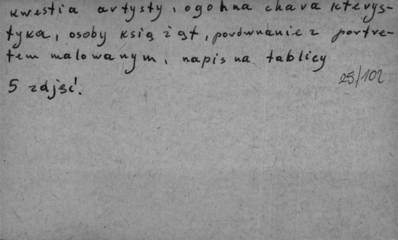 kwestia artysty, ogólna charakterys-
tyka, osoby książąt, porównanie z portre-
tem malowanym, napis na tablicy
25/102
5 zdjęć!